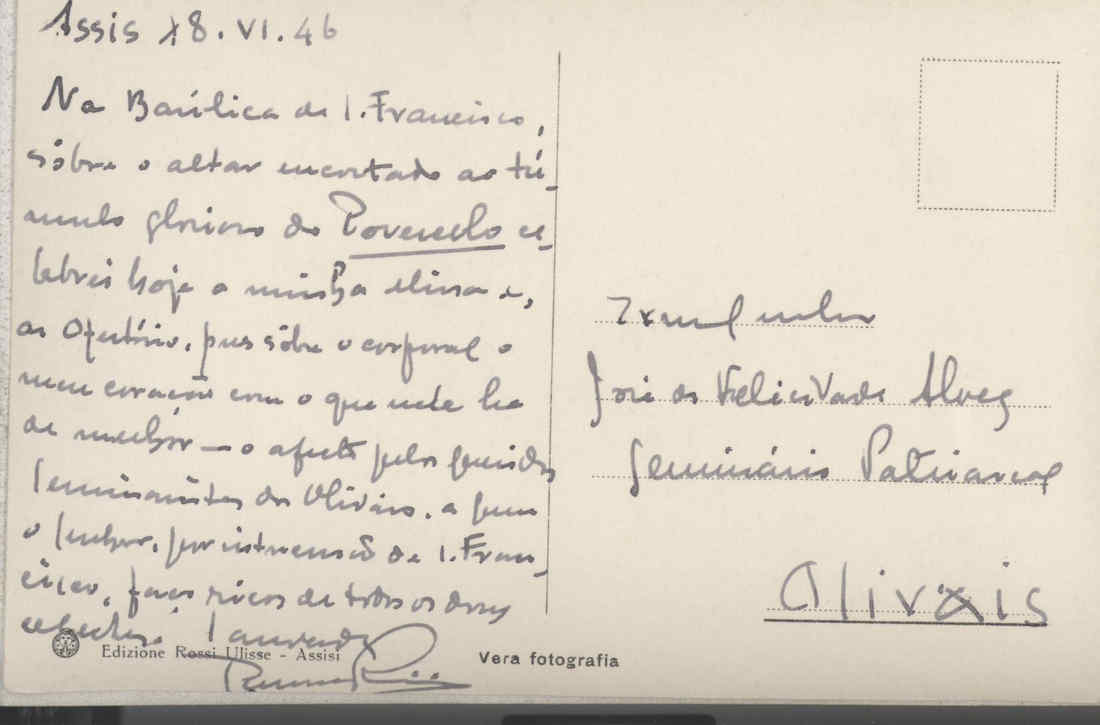 Assis 18.VI.46
Na Basílica de S. Francisco,
sôbre o altar encostado ao tú-
mulo glorioso do Poverello ce-
lebrei hoje a minha Missa e,
ao Ofertório, pus sôbre o corporal o
meu coração com o que nele ha
de melhor — o afecto pelos queridos
Seminaristas dos Olivais, a quem
o Senhor, por intercessão de S. Fran-
cisco, faça ricos de todos os dons
celestes.
Edizione Rossi Ulisse - Assisi
Vera fotografia
José da Felicidade Alves
Seminário Patriarcal
Olivais